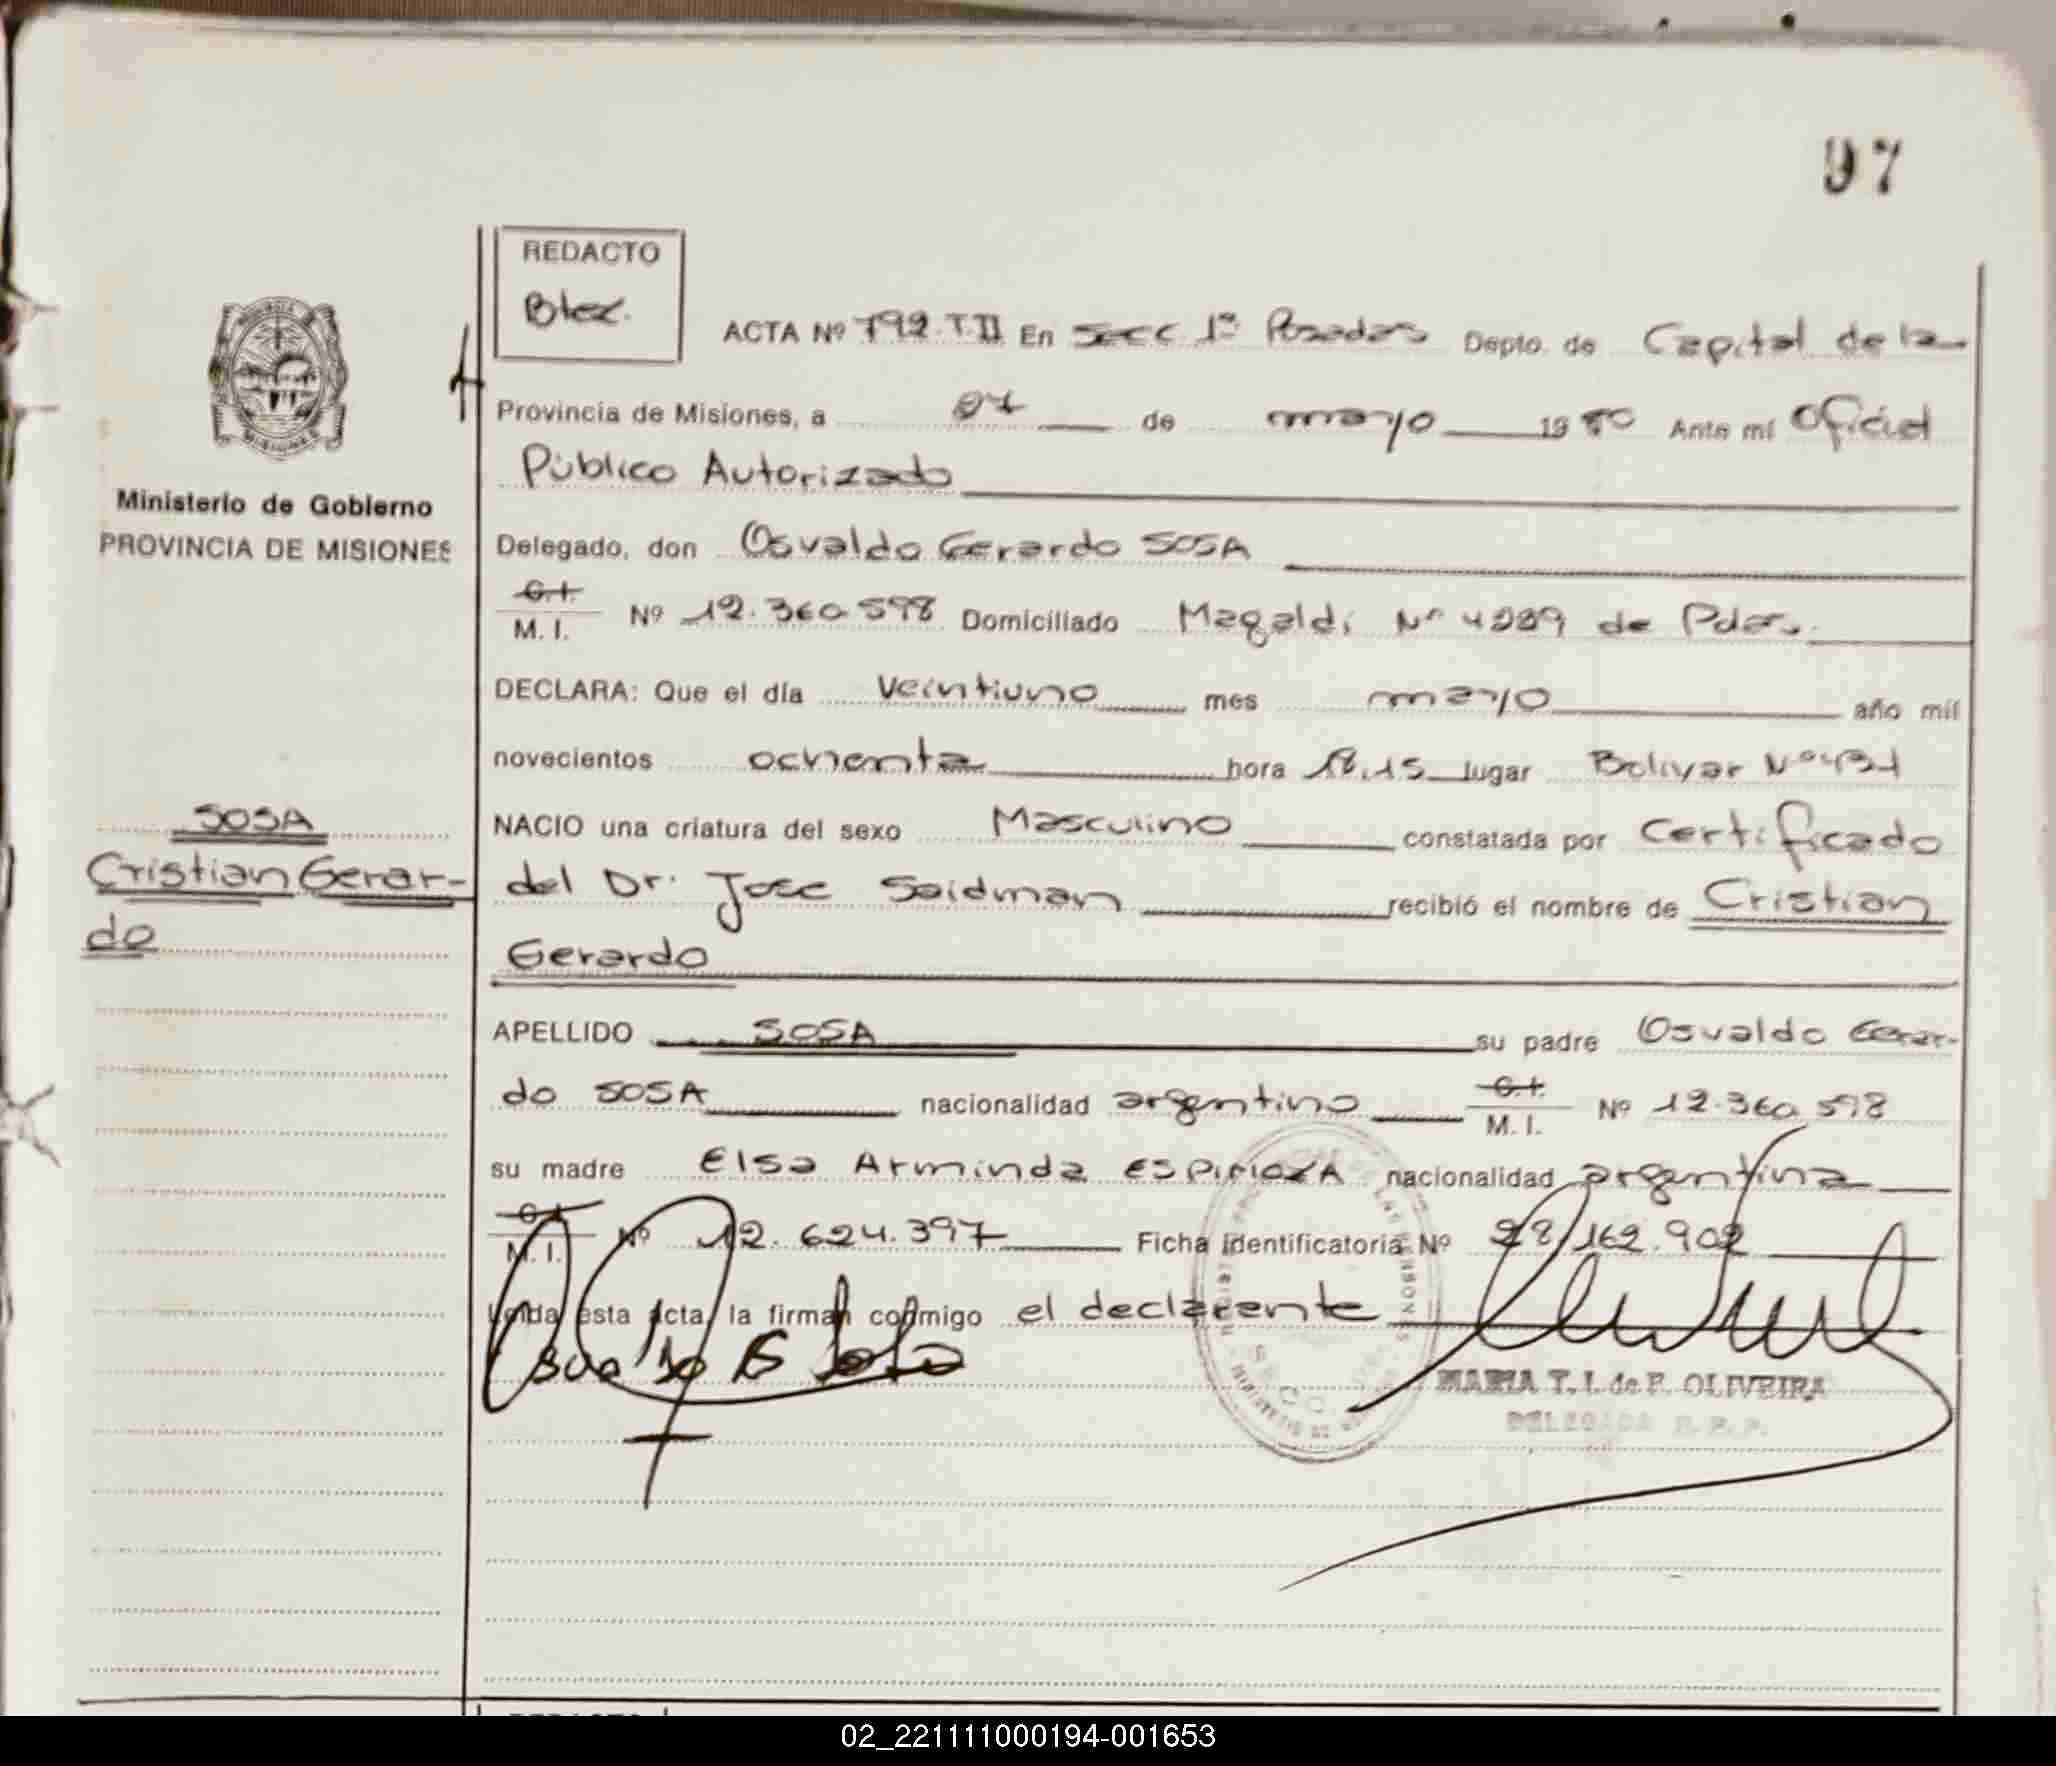 97
REDACTO
ACTA Nº 792.T.II En Secc 1ª Posadas Depto. de Capital de la
Provincia de Misiones, a de mayo 1980 Ante mi Oficial
Público Autorizado
Ministerio de Gobierno
PROVINCIA DE MISIONES
Delegado, don Osvaldo Gerardo SOSA
C.I.
M. I. Nº 12.360.598 Domiciliado Magaldi Nº de Pdas.
DECLARA: Que el día Veintiuno mes mayo año mil
novecientos ochenta hora 18,15 lugar Bolivar Nº
SOSA
Cristian Gerar-
do
NACIO una criatura del sexo Masculino constatada por Certificado
del Dr. Jose Seidman recibió el nombre de Cristian
Gerardo
APELLIDO SOSA su padre Osvaldo Gerar-
do SOSA nacionalidad argentino C.I.
M. I. Nº 12.360.598
su madre Elsa Arminda ESPINOZA nacionalidad argentina
M. I. Nº 12.624.397 Ficha identificatoria Nº 28.162.902
Leida esta acta, la firman conmigo el declarante
MARIA T. I. de F. OLIVEIRA
DELEGADA R. P. P.
02_221111000194-001653